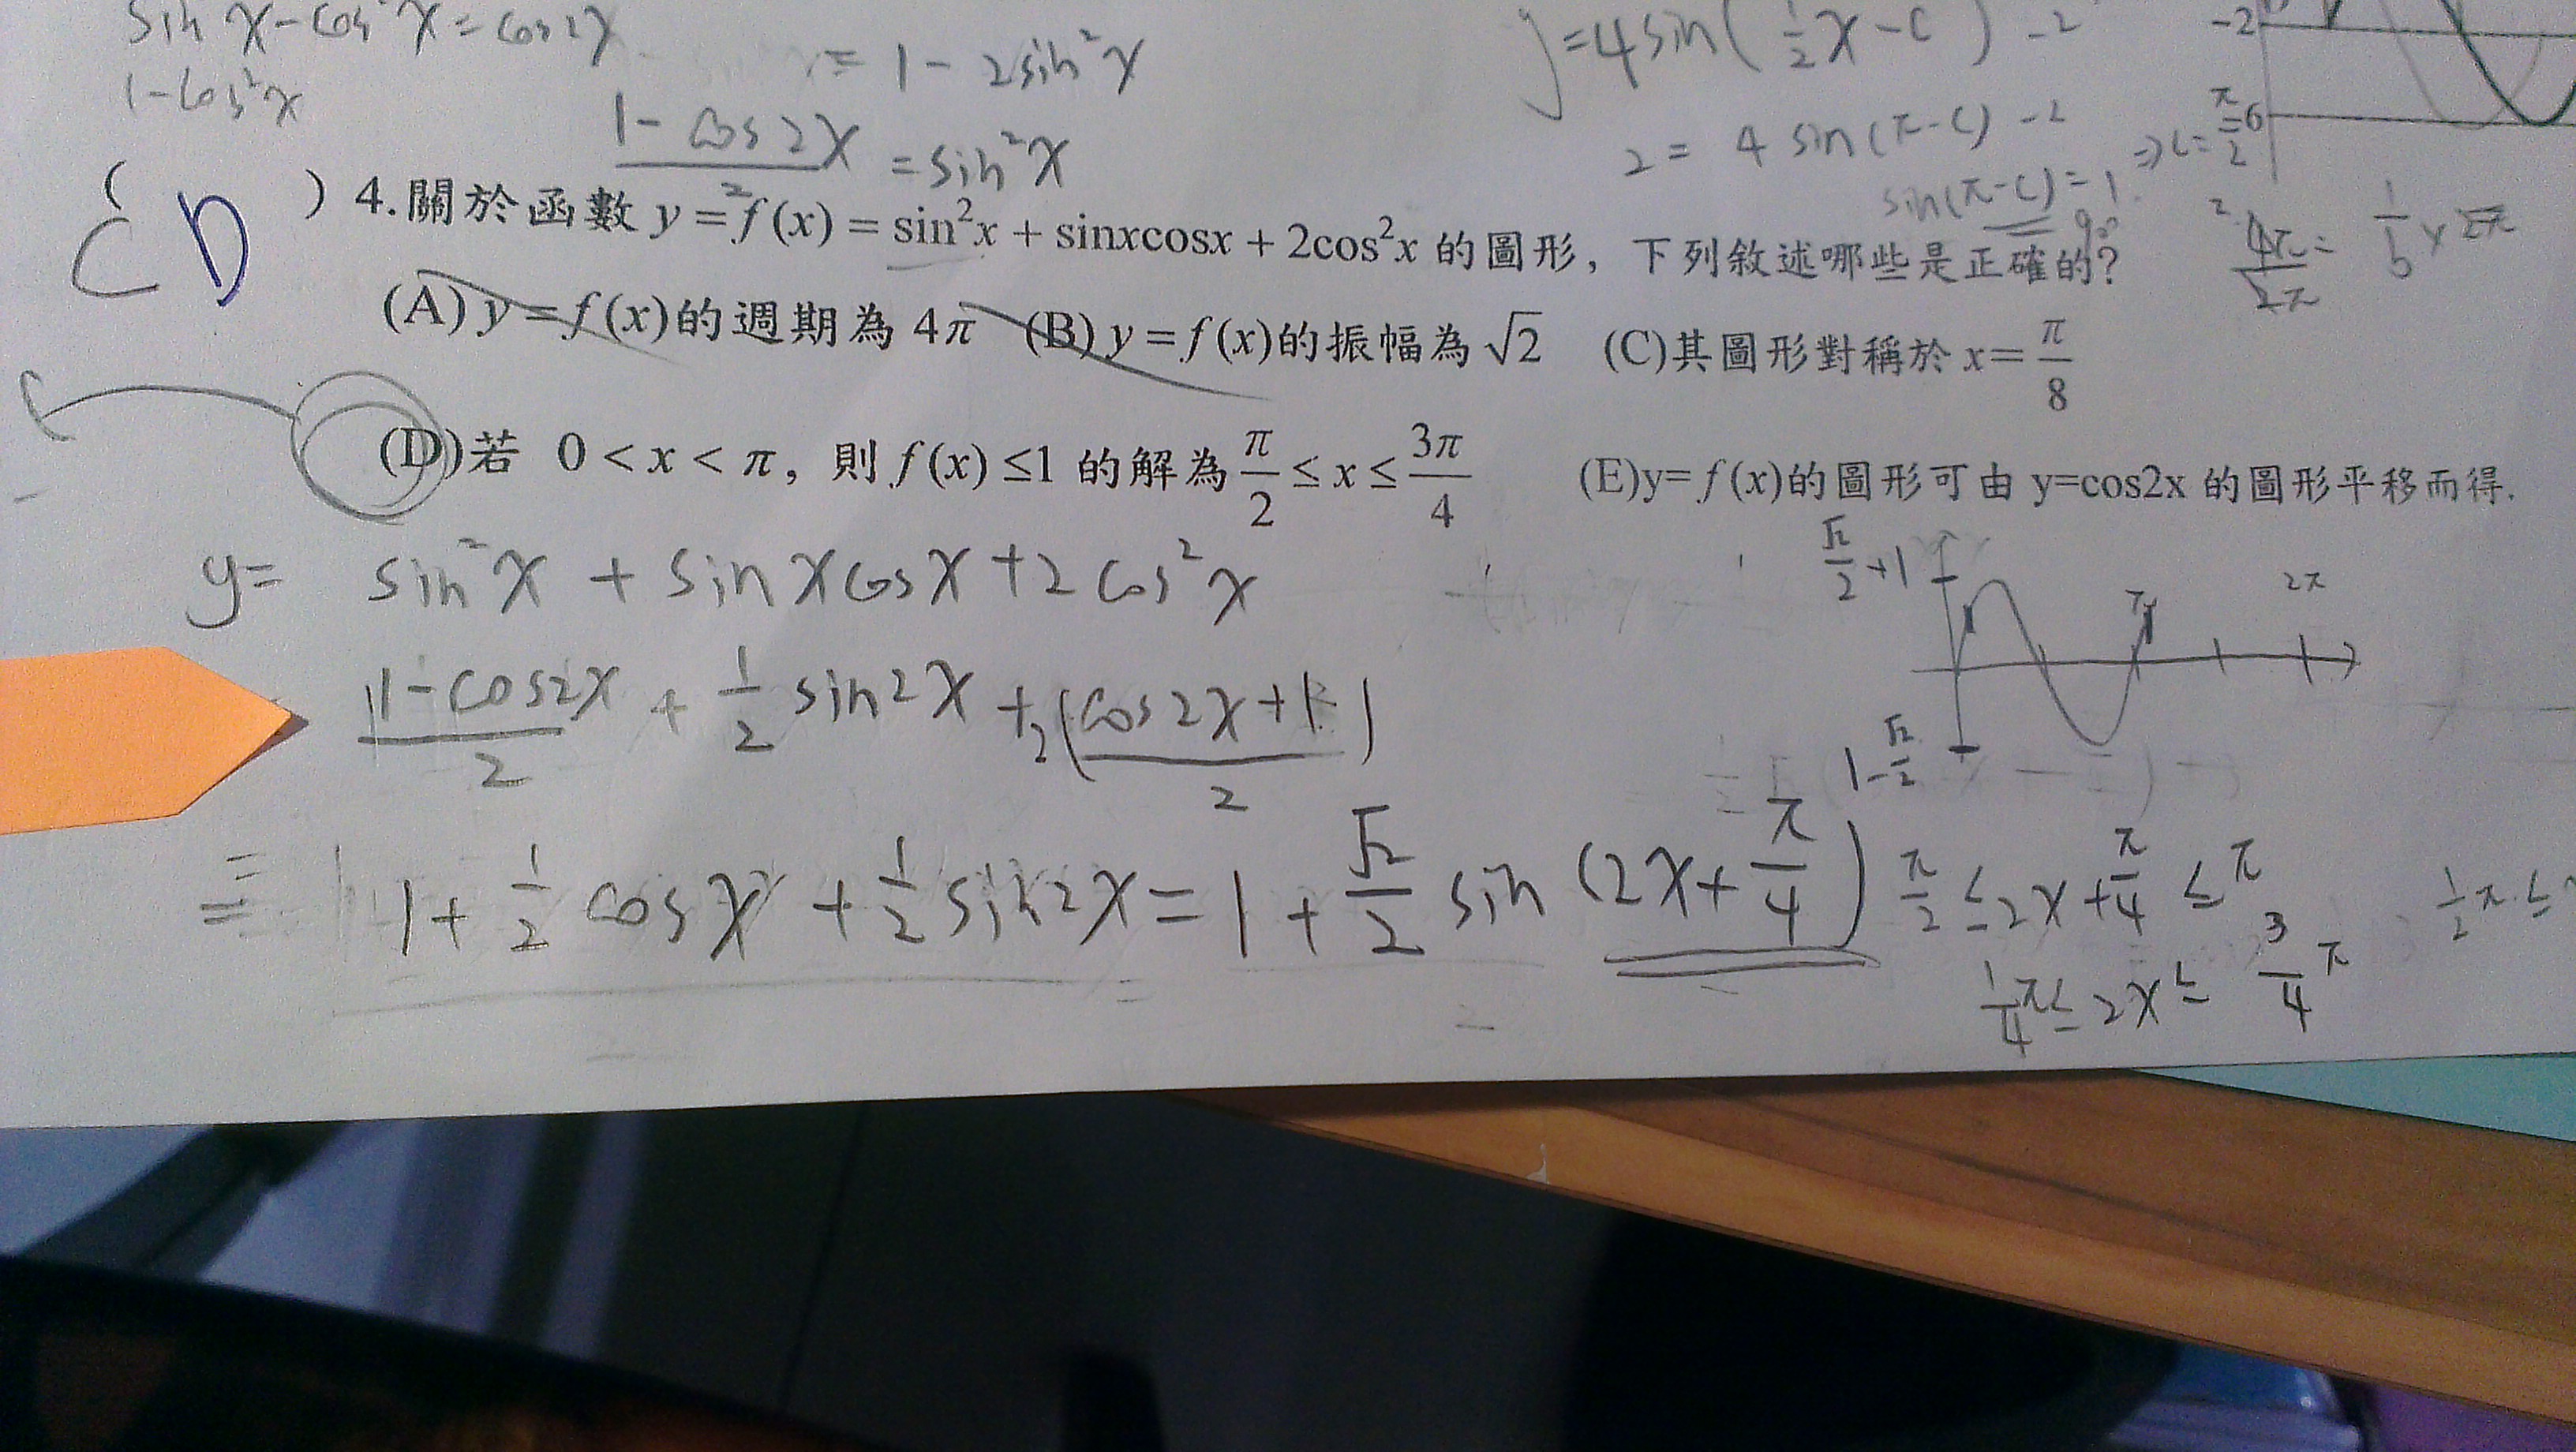 sin x - cos² x = cos2x
1-cos²x
= 1 - 2sin²x
1 - cos 2x / 2 = sin²x
y=4sin( 1/2 x - c ) - 2
2 = 4 sin(π-c) - 2
sin(π-c) = 1 ⇒ c = π/2
90°
-2
-6
(CD) 4.關於函數 y = f(x) = sin²x + sinxcosx + 2cos²x 的圖形, 下列敘述哪些是正確的?
(A) y = f(x)的週期為 4π (B) y = f(x)的振幅為 √2 (C)其圖形對稱於 x= π/8
(D)若 0 < x < π, 則 f(x) ≤1 的解為 π/2 ≤ x ≤ 3π/4 (E)y= f(x)的圖形可由 y=cos2x 的圖形平移而得.
y= sin²x + sin x cos x + 2 cos²x
1-cos2x / 2 + 1/2 sin2x + 2( cos2x+1 / 2 )
= 1 + 1/2 cos x + 1/2 sin2x = 1 + √2/2 sin (2x + π/4)
√2/2 +1
π
2π
1 - √2/2
π/2 ≤ 2x + π/4 ≤ π
1/4 π ≤ 2x ≤ 3/4 π
1/2 π ≤